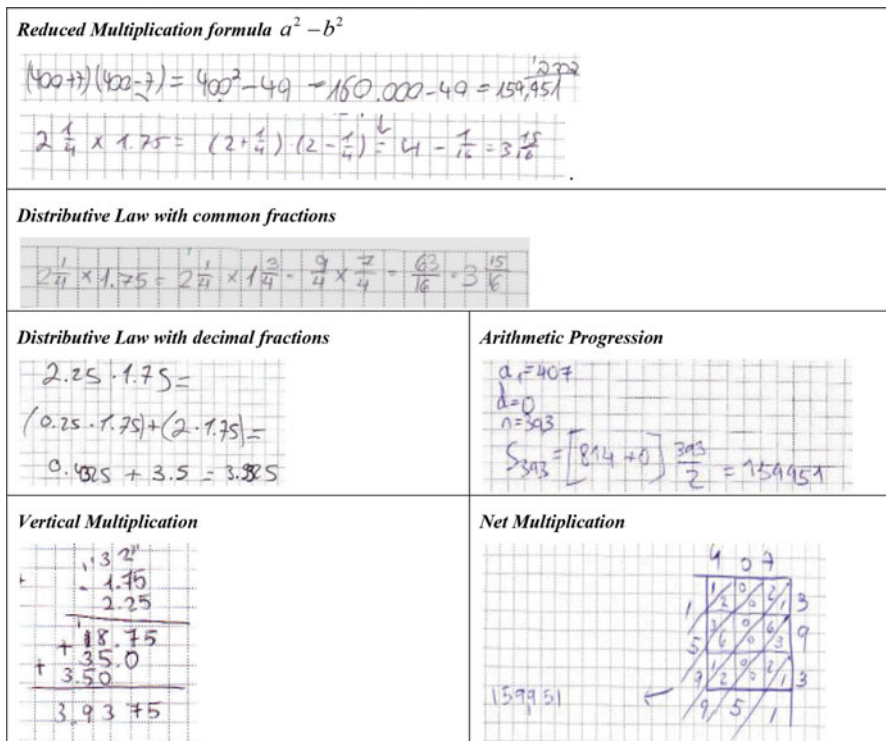 Reduced Multiplication formula a² – b²
(400+7)(400-7) = 400² - 49 = 160.000 - 49 = 159,951
2 1/4 × 1.75 = (2 + 1/4) · (2 - 1/4) = 4 - 1/16 = 3 15/16
Distributive Law with common fractions
2 1/4 × 1.75 = 2 1/4 × 1 3/4 = 9/4 × 7/4 = 63/16 = 3 15/16
Distributive Law with decimal fractions
2.25 · 1.75 =
(0.25 · 1.75) + (2 · 1.75) =
+ 3.5 =
Arithmetic Progression
a₁ = 407
d = 0
n = 393
S₃₉₃ = [814 + 0] 393/2 = 159951
Vertical Multiplication
1.75
2.25
+ 18.75
+ 35.0
3.50
3.9375
Net Multiplication
4 0 7
1 0 2 3
1 2 0 1
3 0 6 9
5 6 0 3
1 0 2 3
9 2 0 1
9 5 1
159951